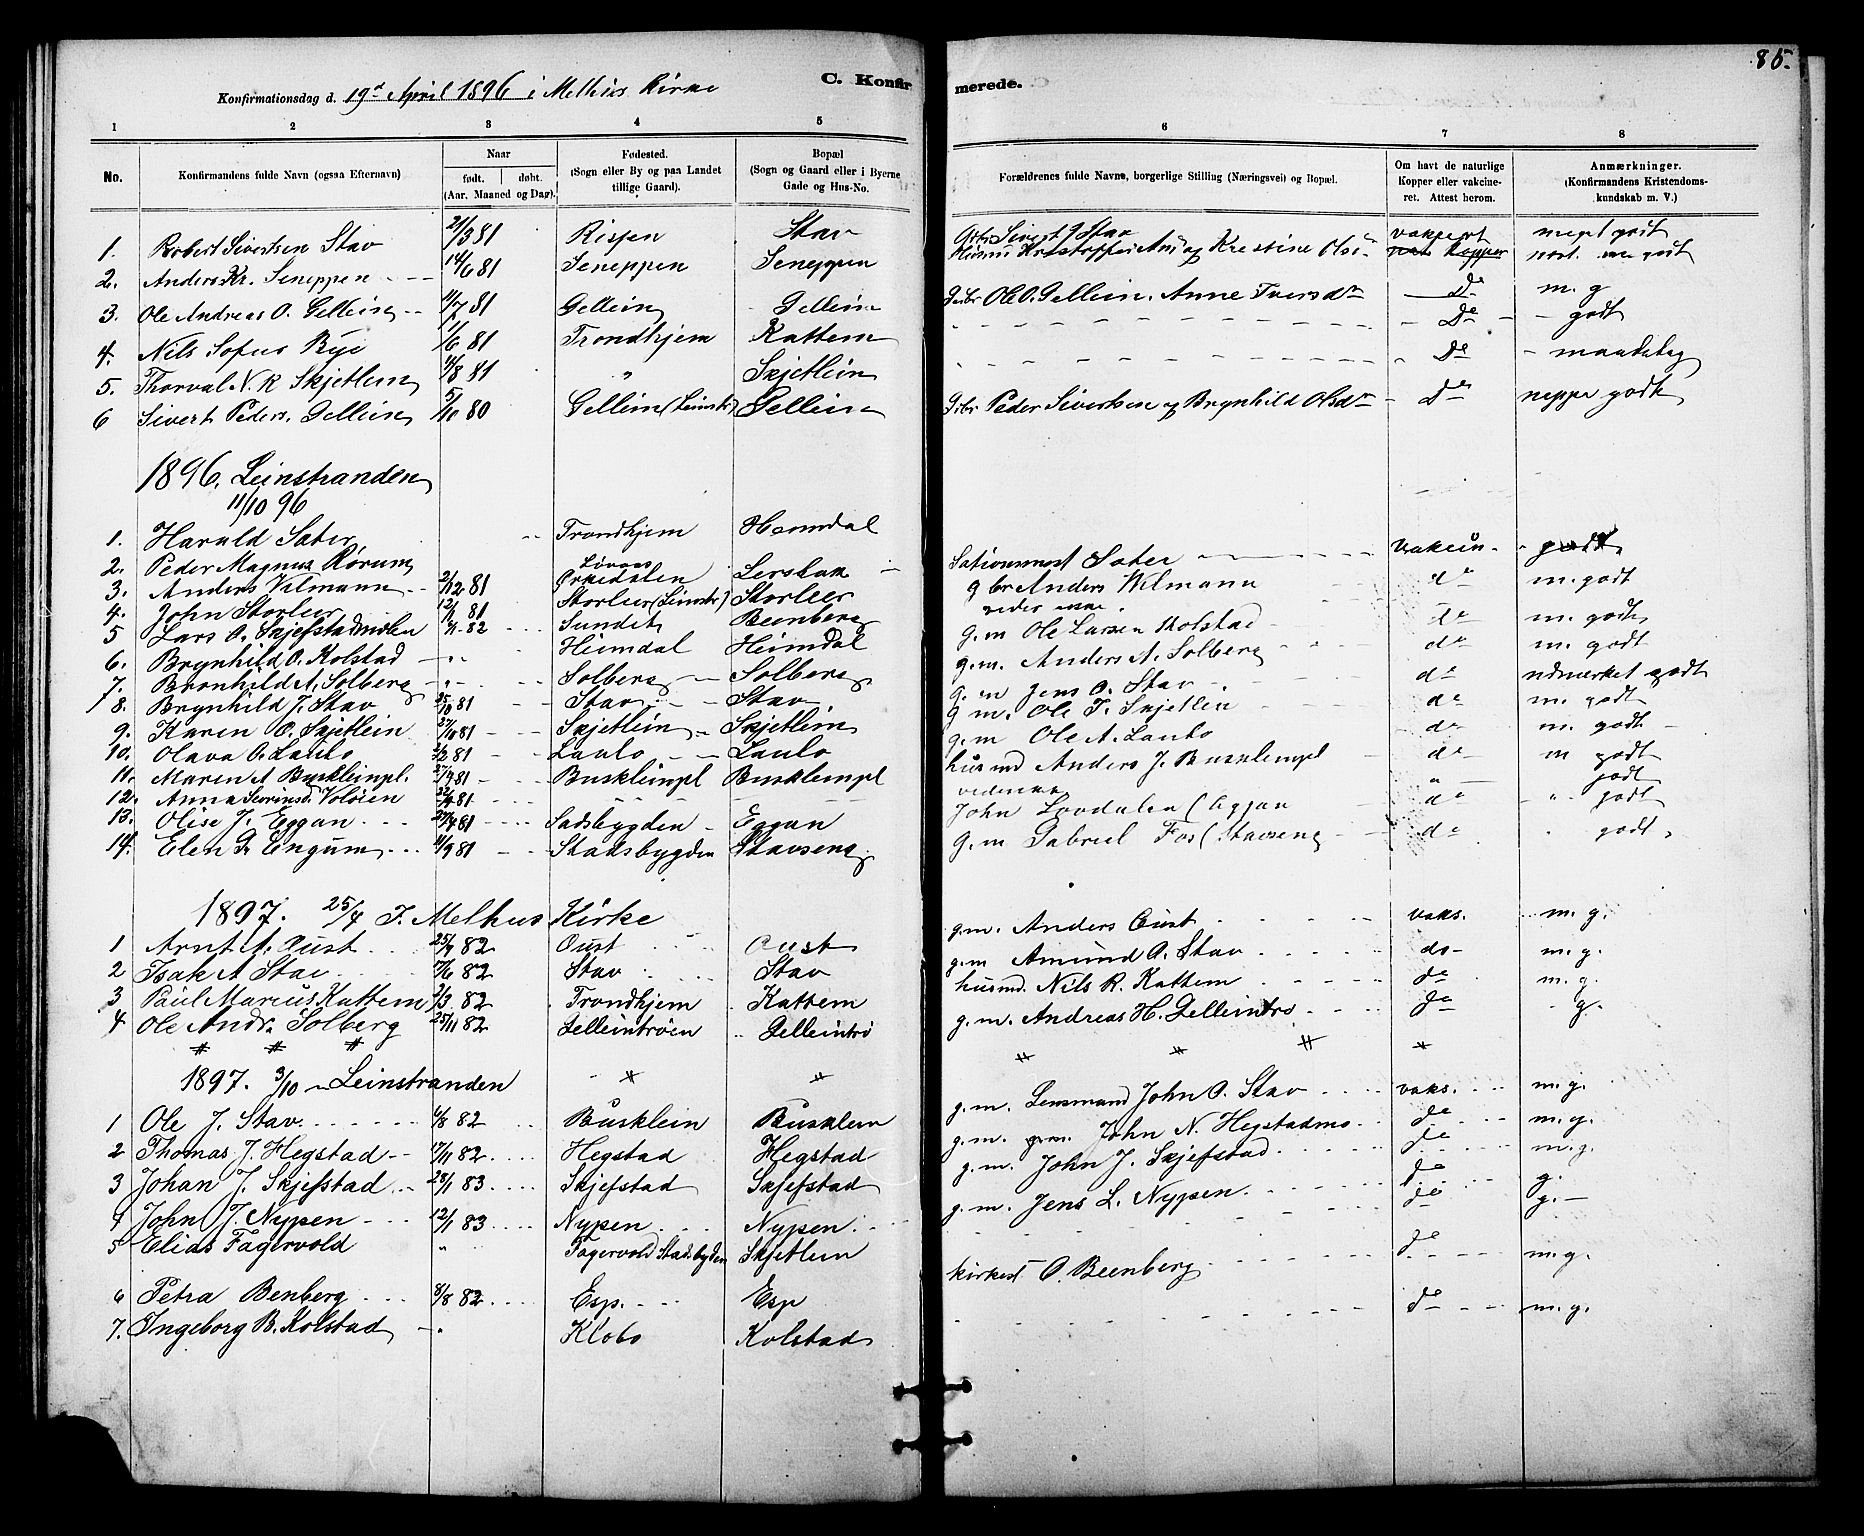 85.
Konfirmationsdag d. 19de April 1896 i Melhus Kirke
C. Konfirmerede.
1 2 3 4 5 6 7 8
No.
Konfirmandens fulde Navn (ogsaa Efternavn)
Naar
født. døbt.
(Aar. Maaned og Dag).
Fødested.
(Sogn eller By og paa Landet
tillige Gaard).
Bopæl
(Sogn og Gaard eller i Byerne
Gade og Hus-No.
Forældrenes fulde Navne, borgerlige Stilling (Næringsvei) og Bopæl.
Om havt de naturlige
Kopper eller vakcine-
ret. Attest herom.
Anmærkninger.
(Konfirmandens Kristendoms-
kundskab m. V.)
1. Robert Sivertsen Stav 21/3 81 Rispen Stav Gbr Sivert J Stav vakcert meget godt
2. Anders Kr. Seneppen 14/6 81 Seneppen Seneppen Kristoffer og Kristine godt
3. Ole Andreas O. Gellein 11/7 81 Gellein Gellein Gbr Ole O. Gellein. Anne Iversdr Do m. g
4. Nils Sofus Bye 1/6 81 Trondhjem Kattem Do - godt
5. Thorval N. R Skjetlein 14/8 81 " Skjetlein Do - maadelig
6 Sivert Peders. Gellein 5/10 80 Gellein (Leinstr) Gellein Gbr Peder Sivertsen og Brynhild Olsdr Do neppe godt
1896. Leinstranden
11/10 96
1. Harald Sater Trondhjem Hemdal Sationsmest Sater vakcin. godt
2. Peder Magnus Rørum Løvaas
3. Anders Vilmann 2/12 81 Orkedalen Lerstak gbr Anders Wilmann do m. godt
4. John Storler 12/1 81 Storleer (Leinstr) Storleer do m. godt
5 Lars O. Skjefstadmolen 82 Sundet Benberg g.m Ole Larsen Kolstad do m. godt
6. Brynhild O. Kolstad Heimdal Heimdal g.m. Anders A. Solberg do udmærket godt
7. Brynhild A. Solberg Solberg Solberg g.m Jens O. Stav do m. godt
8. Brynhild J. Stav 25/9 81 Stav Stav g m. Ole T. Skjetlein do m. godt
9. Karen O. Skjetlein 27/10 81 Skjetlein Skjetlein g.m Ole A. Laulo do m godt
10. Olava O. Laulo 81 Laulo Laulo husmd Anders J. Busklempl " godt
11. Maren A Buskleinpl. 27/9 81 Buskleinpl Busklempl
12. Anna Sevrinsd. Voløien 81
13. Olise J. Eggan 27/4 81 Sadsbygden Eggan John Lovdalen (Eggan do godt
14. Elen G. Engum 11/9 81 Stadsbygden Stavseng g.m Gabriel Fos (Stavseng do godt
1897. 25/4 I. Melhus Kirke
1 Arnt A. Oust 25/7 82 Oust Oust g.m. Anders Oust vaks. m. g.
2 Isak A Stav 17/6 82 Stav Stav g.m Amund A. Stav do m. g.
3 Paul Marius Kattem 2/3 82 Trondhjem Kattem husmd. Nils R. Kattem do m. g.
4 Ole Andr. Solberg 25/11 82 Gelleintrøen Gelleintrø g.m. Andreas H. Gelleintrø do g.
1897. 3/10 Leinstranden
1 Ole J. Stav 4/8 82 Busklein Busklein g.m. Lensmand John O. Stav vaks. m. g.
2 Thomas J. Hegstad 17/11 82 Hegstad Hegstad g.m. g.m. John N. Hegstadmo do m. g.
3 Johan J. Skjefstad 28/1 83 Skjefstad Skjefstad g.m. John J. Skjefstad do m. g.
4 John J. Nypen 12/1 83 Nypen Nypen g.m. Jens L. Nypen do g.
5 Elias Fagervold " Fagervold Stadsbygden Skjetlein do g.
6 Petra Benberg 8/8 82 Esp Esp kirkest O. Beenberg do m. g.
7. Ingeborg B. Kolstad " Klobo Kolstad do m. g.